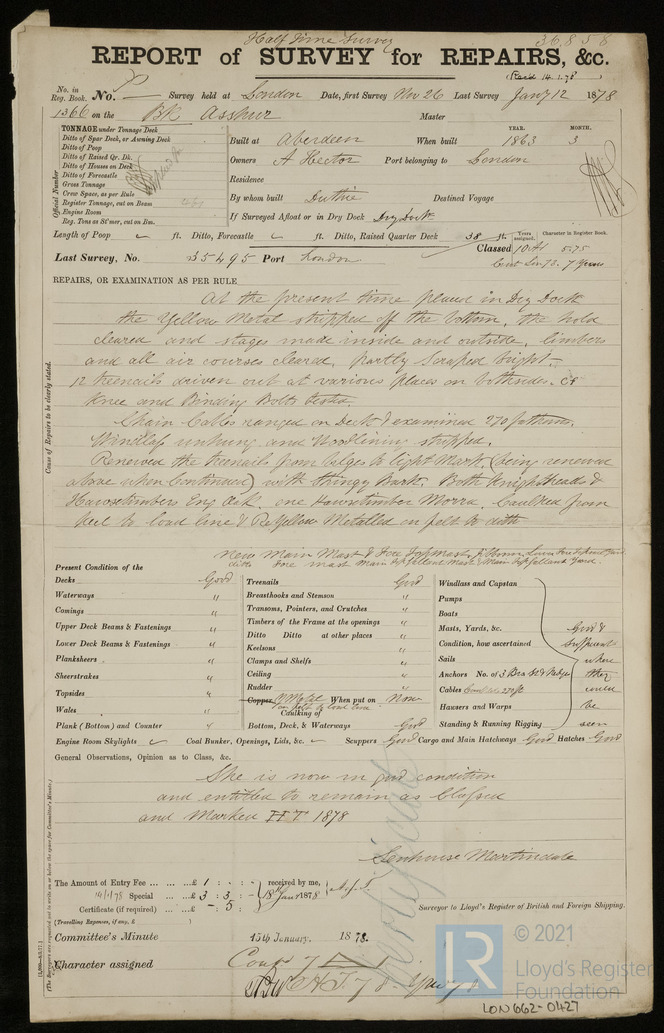 Half Time Survey
36858
REPORT of SURVEY for REPAIRS, &c.
(Rec'd 14.1.78)
No. in Reg. Book. No. Survey held at London Date, first Survey Nov 26 Last Survey Jany 12 1878
1366 on the Bk Asshur Master
TONNAGE under Tonnage Deck
Ditto of Spar Deck, or Awning Deck
Ditto of Poop
Ditto of Raised Qr. Dk.
Ditto of Houses on Deck
Ditto of Forecastle
Gross Tonnage
Crew Space, as per Rule
Register Tonnage, cut on Beam
Engine Room
Reg. Tons as St'mer, cut on Bm.
Official Number
YEAR. MONTH.
Built at Aberdeen When built 1863 3
Owners A Hector Port belonging to London
Residence
By whom built Duthie Destined Voyage
If Surveyed Afloat or in Dry Dock Dry Dock
Length of Poop ft. Ditto, Forecastle ft. Ditto, Raised Quarter Deck 38 ft. Years assigned. Character in Register Book.
Last Survey, No. 35495 Port London Classed 10 A1 5.75
7 Years
REPAIRS, OR EXAMINATION AS PER RULE
At the present time placed in Dry Dock
the Yellow Metal stripped off the bottom, the hold
cleared and stages made inside and outside, limbers
and all air courses cleared, partly scraped bright
12 treenails driven out at various places on bothsides.
Knee and Binding Bolts tested
Chain Cables ranged on Deck & examined 270 fathoms.
Windlass unhung and Woodlining stripped.
Renewed the treenails from bilges to light Mark, (being renewed
above when Continued) with stringy Bark. Both Knightheads &
Hawsetimbers Eng Oak. one Hawsetimber Morra. Caulked from
keel to load line & ReYellow Metalled on felt to
Cause of Repairs to be clearly stated.
New Main Mast & Fore Topmast,
ditto Fore mast Main Topgallant Mast & Main Topgallant Yard.
Present Condition of the
Decks Good
Waterways "
Comings "
Upper Deck Beams & Fastenings "
Lower Deck Beams & Fastenings "
Planksheers "
Sheerstrakes "
Topsides "
Wales "
Plank (Bottom) and Counter "
Treenails Good
Breasthooks and Stemson "
Transoms, Pointers, and Crutches "
Timbers of the Frame at the openings "
Ditto Ditto at other places "
Keelsons "
Clamps and Shelfs "
Ceiling "
Rudder "
Copper Y Metal When put on Now
on felt to load line
Caulking of
Bottom, Deck, & Waterways Good
Windlass and Capstan
Pumps
Boats
Masts, Yards, &c. Good &
Condition, how ascertained sufficient
Sails where
Anchors No. of 3 Brs St & Kedge they
Cables 270 fs could
Hawsers and Warps be
Standing & Running Rigging seen
Engine Room Skylights Coal Bunker, Openings, Lids, &c. Scuppers Good Cargo and Main Hatchways Good Hatches Good
General Observations, Opinion as to Class, &c.
She is now in good condition
and entitled to remain as Classed
and Marked H T 1878
Senhouse Martindale
The Amount of Entry Fee £ 1 : - : - received by me,
14/1/78 Special £ 3 : 3 : - 18 Jany 1878
Certificate (if required) £ - : 5 :
(Travelling Expenses, if any, £ )
Surveyor to Lloyd's Register of British and Foreign Shipping.
Committee's Minute 15th January. 1878.
Character assigned
© 2021
LR
Lloyd's Register
Foundation
LON662-0427